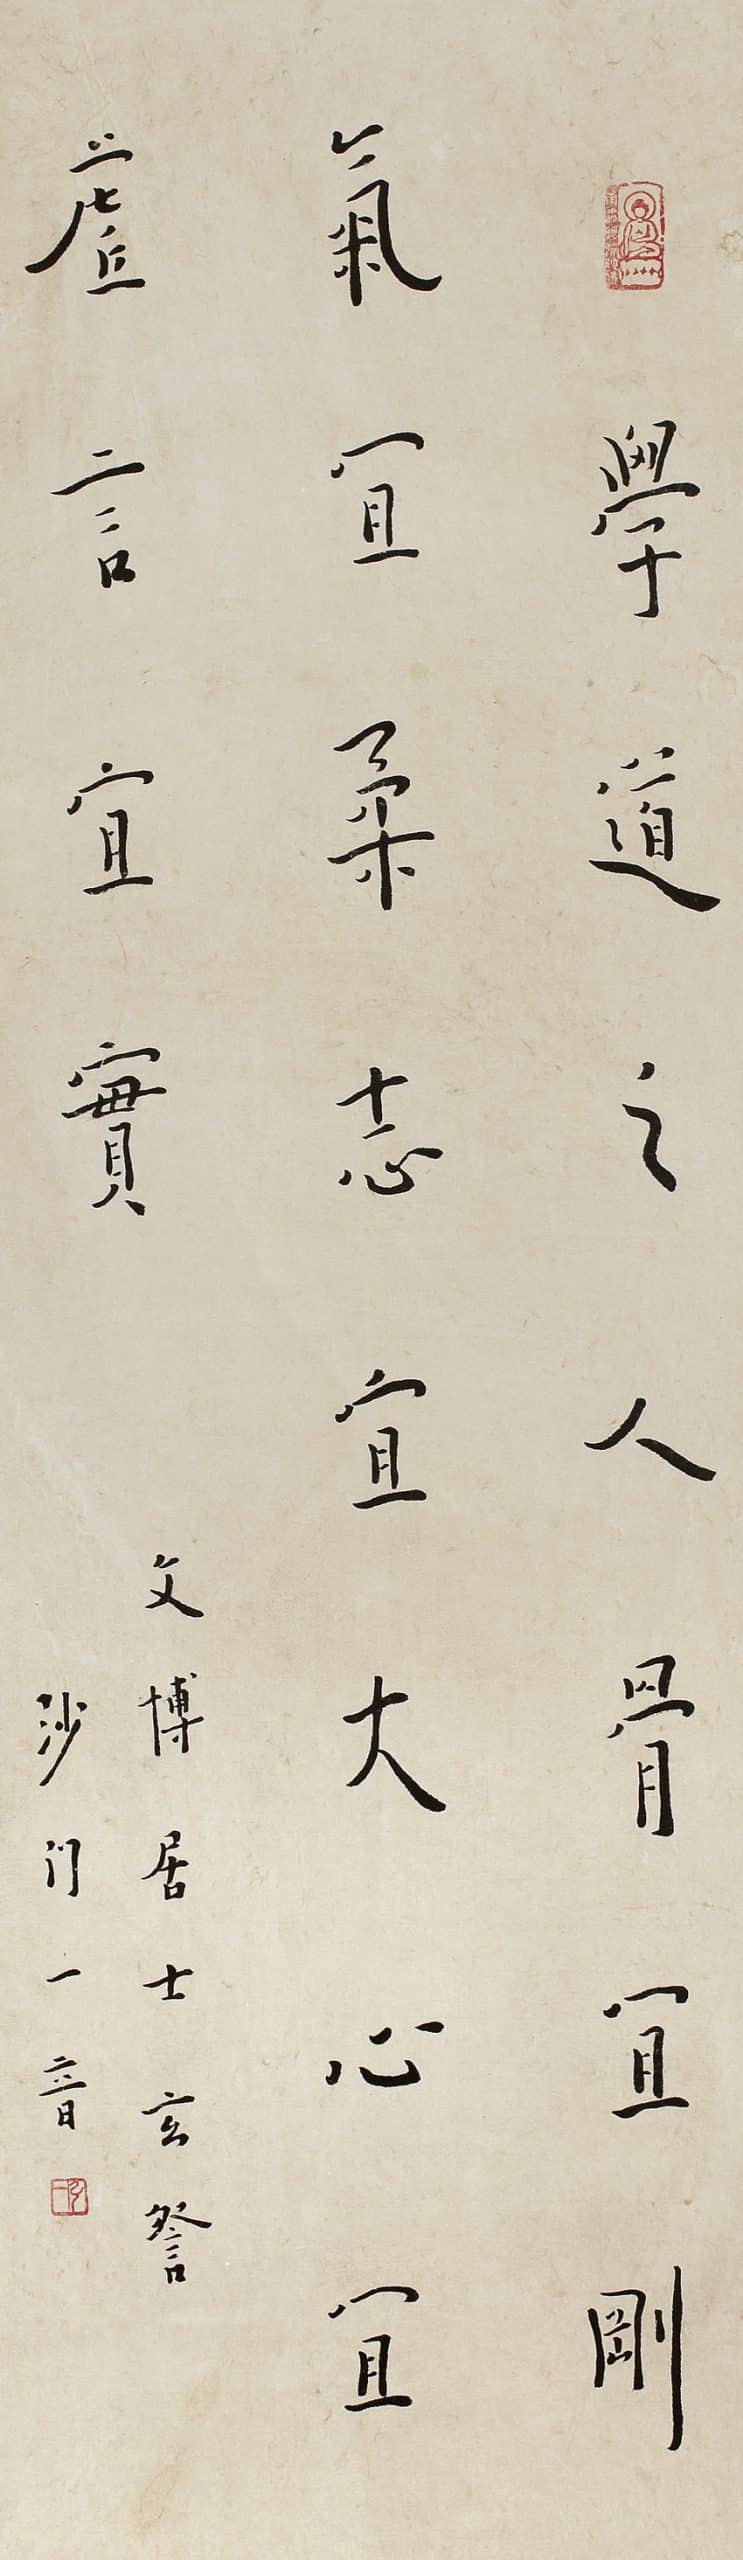 學道之人骨宜剛
氣宜柔志宜大心宜
虛言宜實
文博居士玄詧
沙门一音